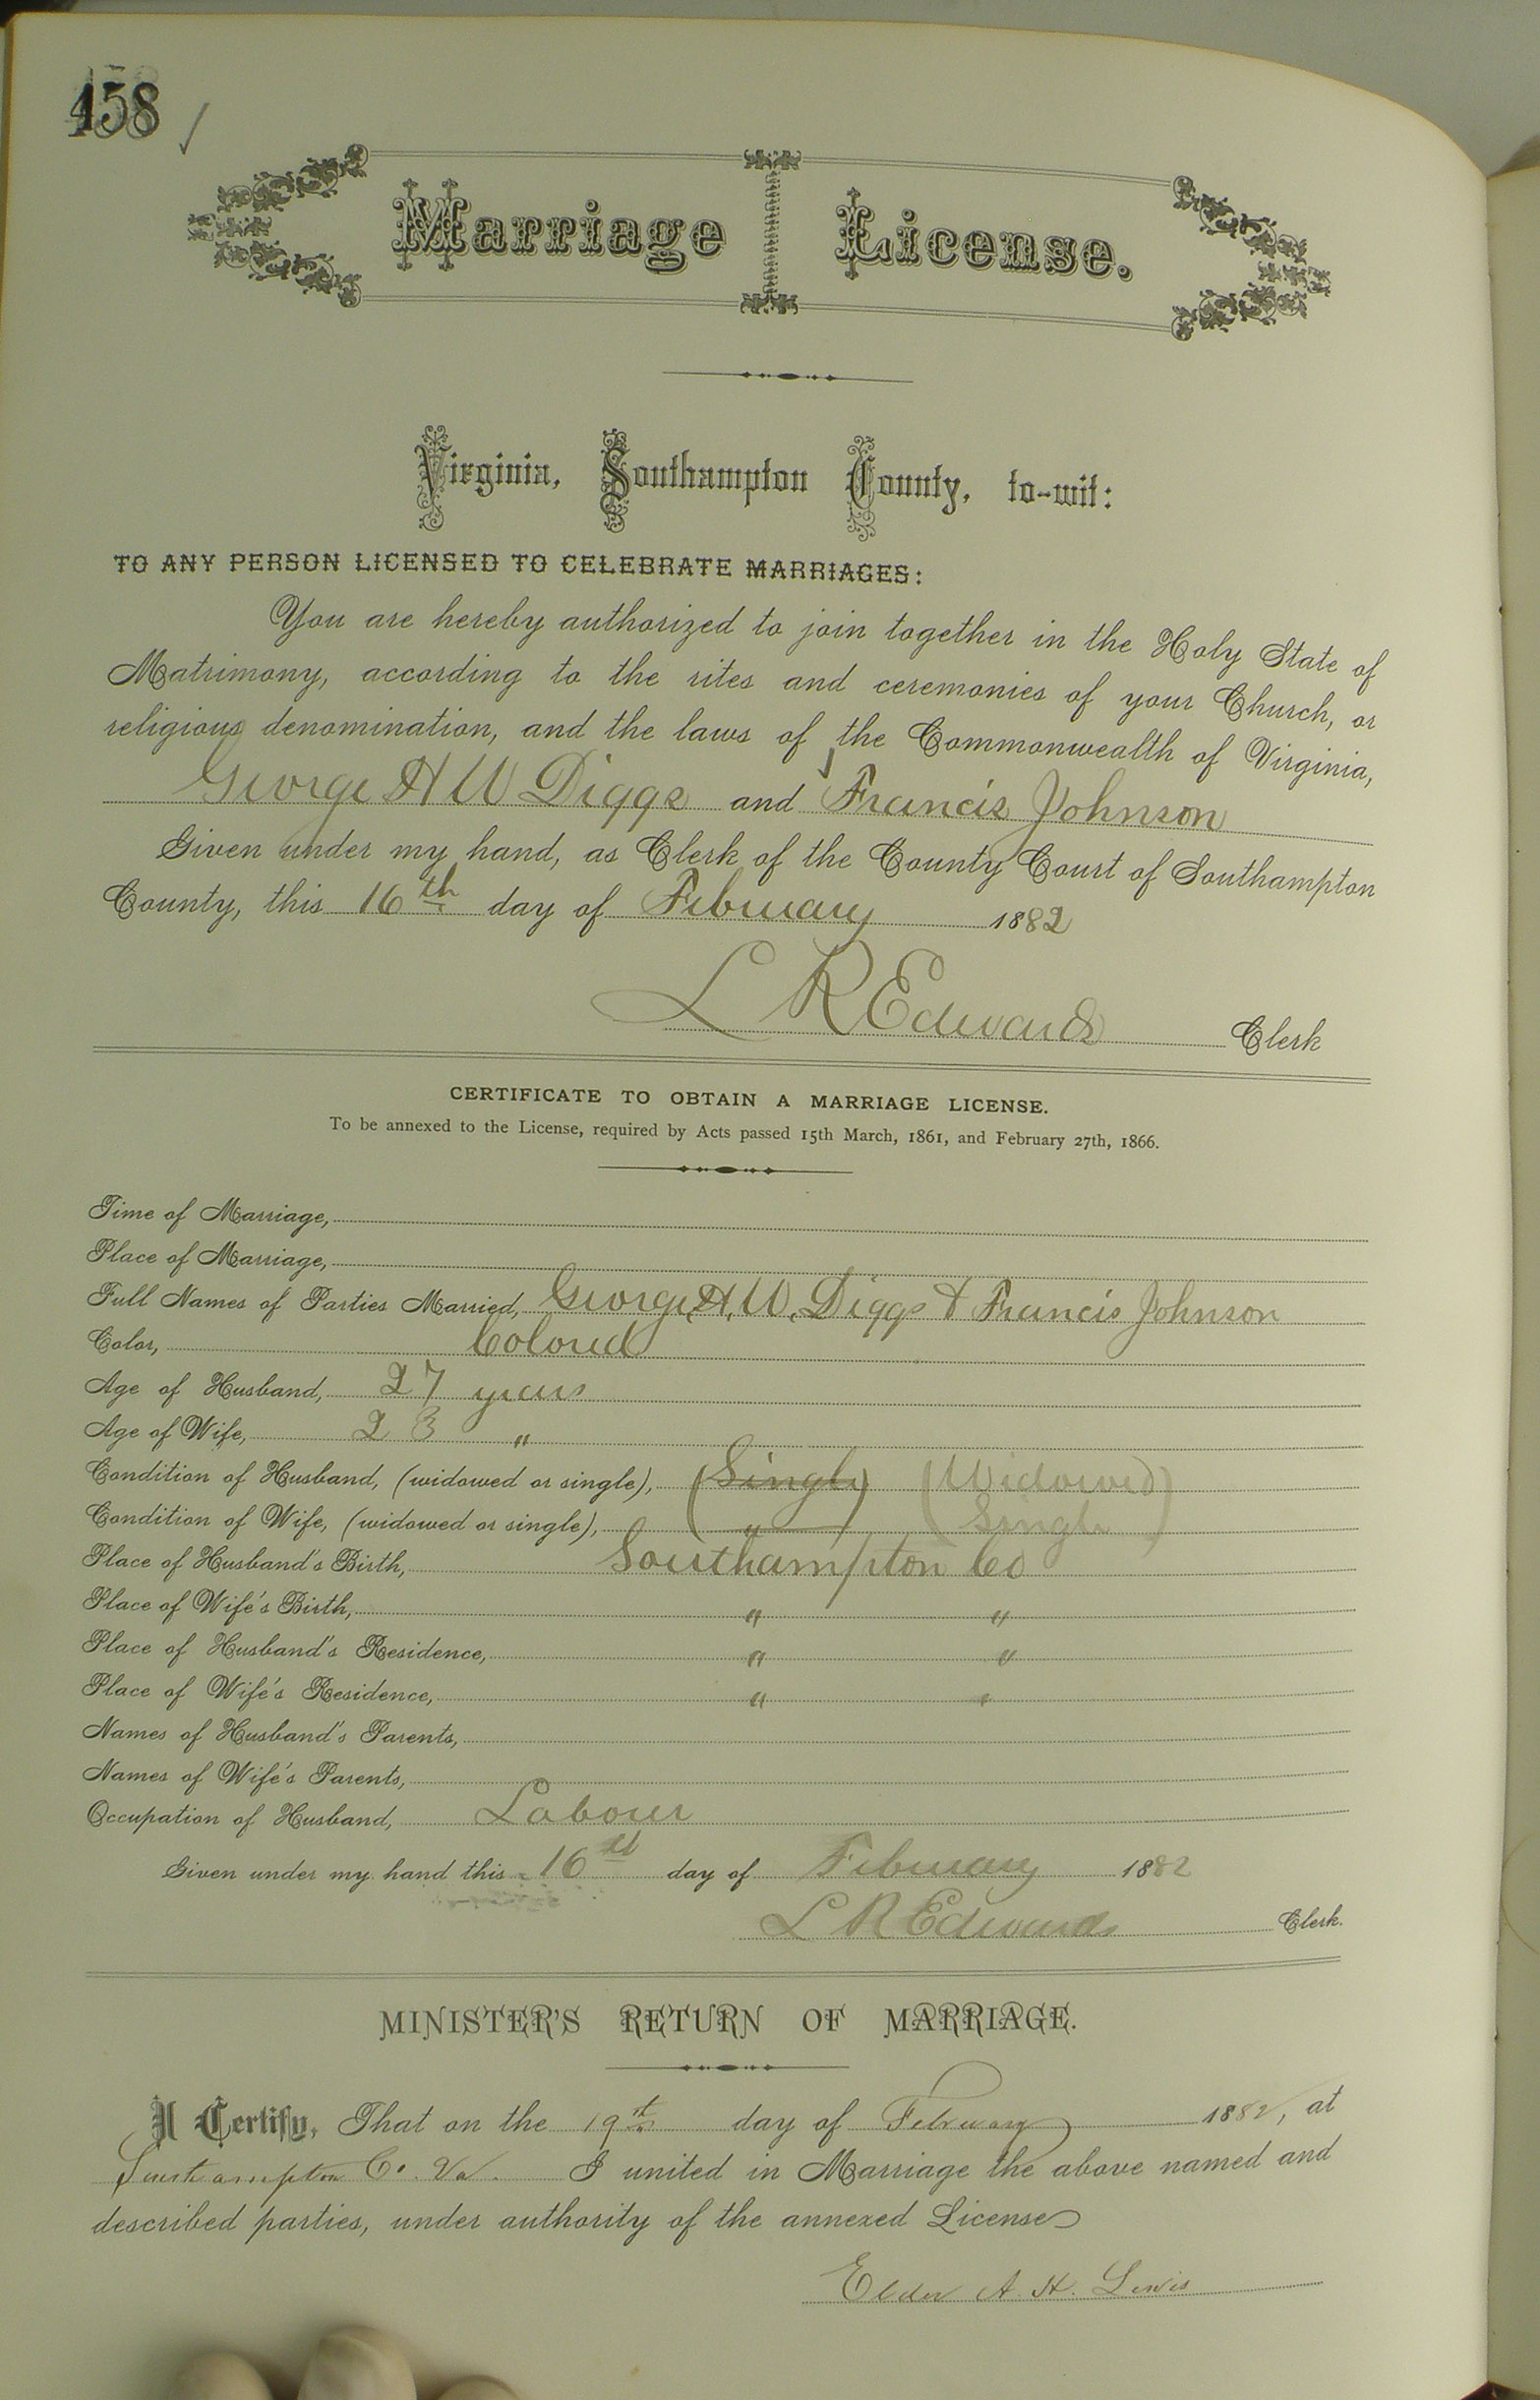 458
Marriage License.
Virginia, Southampton County, to-wit:
TO ANY PERSON LICENSED TO CELEBRATE MARRIAGES:
You are hereby authorized to join together in the Holy State of
Matrimony, according to the rites and ceremonies of your Church, or
religious denomination, and the laws of the Commonwealth of Virginia,
George H W Diggs and Francis Johnson
Given under my hand, as Clerk of the County Court of Southampton
County, this 16th day of February 1882
L R Edwards Clerk
CERTIFICATE TO OBTAIN A MARRIAGE LICENSE.
To be annexed to the License, required by Acts passed 15th March, 1861, and February 27th, 1866.
Time of Marriage,
Place of Marriage,
Full Names of Parties Married, George H. W. Diggs & Francis Johnson
Color, Colored
Age of Husband, 27 years
Age of Wife, 23 "
Condition of Husband, (widowed or single), (Single) (Widowed)
Condition of Wife, (widowed or single), ( " ) (Single)
Place of Husband's Birth, Southampton Co
Place of Wife's Birth, " "
Place of Husband's Residence, " "
Place of Wife's Residence, " "
Names of Husband's Parents,
Names of Wife's Parents,
Occupation of Husband, Labour
Given under my hand this 16th day of February 1882
L R Edwards Clerk.
MINISTER'S RETURN OF MARRIAGE.
I Certify, That on the 19st day of February 1882, at
Southampton Co. Va. I united in Marriage the above named and
described parties, under authority of the annexed License
Elder A. H. Lewis